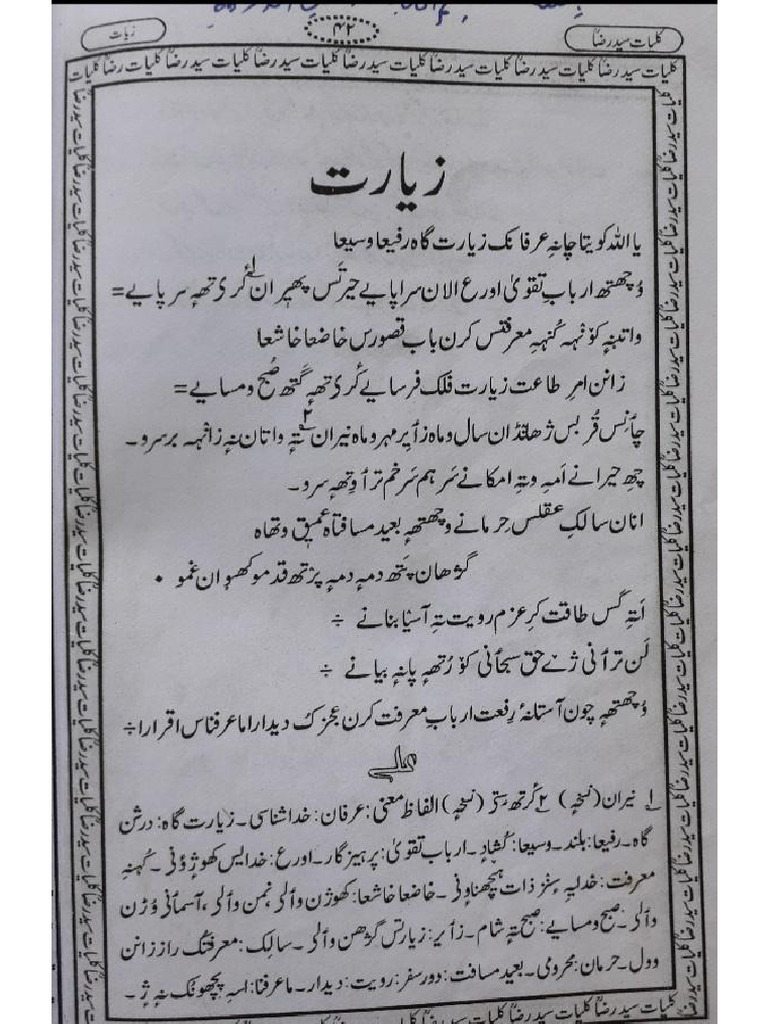 کلیات سید رضاؒ
۴۲
زیارت
زیارت
یا اللہ کویتا چانہِ عرفانک زیارت گاہ رفیعا وسیعا
وُچھتھ ارباب تقویٰ اورع الان سراپایے حیرتس پھیران لے کٔرۍ تھہٕ سرپایے=
واتنہٕ کوٚنہہ کُنہہِ معرفتس کرن باب قصورس خاضعا خاشعا
زانن امرِ طاعت زیارت فلک فرسایے کٔرۍ تھہٕ گتھ صُبح ومسایے=
چانِس قُربس ژھانڈان سال و ماہ زأیر مہر و ماہ نیران تتہٕ ۲ واتان نہٕ زانٛہہ برسرو۔
چھِ حیرانے اَمہِ وتہِ امکانے سَر ہم سَر خم تر أوتھہٕ سرو۔
انان سالکِ عقلس حِرمانے وچھتھہٕ بعید مسافتاہ عمیق وتھاہ
گژھان پتھ دمہٕ دمہٕ پژتھ قدمو کھسوان غمو ۰
اَتہِ گس طاقت کرِ عزم رویت تہِ آسیا بنانے ÷
لَن ترأنی ژے حق سبحأنی کوٚرتھہٕ پانہٕ بیانے ÷
وُچھتھہٕ چون آستانۂ رِفعت اربابِ معرفت کرن عجزک دیدارا ماعرفناس اقرارا÷
لے نیران (نسخہٕ) ۲ کٔرتھ ستۍ (نسخہٕ) الفاظ معنی: عرفان: خدا شناسی۔ زیارت گاہ: درشن
گاہ۔ رفیعا: بلند۔ وسیعا: کُشادٕ۔ ارباب تقویٰ: پرہیزگار۔ اورع: خدایس کھوژوٗنی۔ کُہنہ
معرفت: خدایہِ سٕنز ذات ہیچھناونی۔ خاضعا خاشعا: کھوژن وألی نمن وألی، آسمأنی وُژن
وألی۔ صبح ومسایے: صبح تہٕ شام۔ زأیر: زیارتس گژھن وألی۔ سالِک: معرفتک راز زانن
وول۔ حرمان: محرومی۔ بعید مسافت: دور سفر: رویت: دیدار۔ ماعرفنا: اسہِ پچھونک نہٕ ژٕ۔